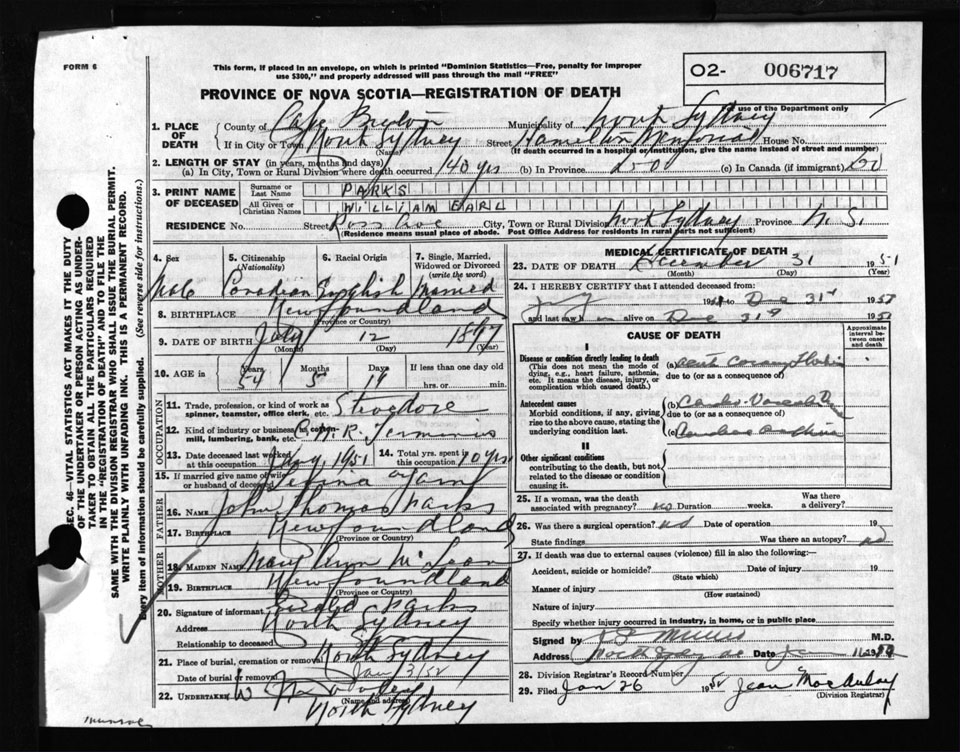 FORM 6
This form, if placed in an envelope, on which is printed "Dominion Statistics—Free, penalty for improper
use $300," and properly addressed will pass through the mail "FREE"
O2- 006717
For use of the Department only
PROVINCE OF NOVA SCOTIA—REGISTRATION OF DEATH
1. PLACE OF DEATH
County of Cape Breton Municipality of North Sydney
If in City or Town North Sydney Street Hamilton Memorial House No.
(Name) (If death occurred in a hospital or institution, give the name instead of street and number)
2. LENGTH OF STAY (in years, months and days)
(a) In City, Town or Rural Division where death occurred 40 yrs (b) In Province (c) In Canada (if immigrant)
3. PRINT NAME OF DECEASED
Surname or Last Name PARKS
All Given or Christian Names WILLIAM EARL
RESIDENCE No. Street Ross Ave City, Town or Rural Division North Sydney Province N.S.
(Residence means usual place of abode. Post Office Address for residents in rural parts not sufficient)
4. Sex 5. Citizenship (Nationality) 6. Racial Origin 7. Single, Married, Widowed or Divorced (write the word)
Male Canadian English Married
8. BIRTHPLACE Newfoundland
(Province or Country)
9. DATE OF BIRTH July 12 1897
(Month) (Day) (Year)
10. AGE in Years Months Days If less than one day old
54 5 19 hrs. or min.
OCCUPATION
11. Trade, profession, or kind of work as spinner, teamster, office clerk, etc. Stevedore
12. Kind of industry or business, as cotton-mill, lumbering, bank, etc. C.N.R. Terminus
13. Date deceased last worked at this occupation 1951 14. Total yrs. spent in this occupation
15. If married give name of wife or husband of deceased
FATHER
16. NAME John Thomas Parks
17. BIRTHPLACE Newfoundland
(Province or Country)
MOTHER
18. MAIDEN NAME Mary Ann McLean
19. BIRTHPLACE Newfoundland
(Province or Country)
20. Signature of informant Parks
Address North Sydney
Relationship to deceased Son
21. Place of burial, cremation or removal North Sydney
Date of burial or removal Jan 3/52
22. UNDERTAKER W
(Name and address)
North Sydney
MEDICAL CERTIFICATE OF DEATH
23. DATE OF DEATH December 31 1951
(Month) (Day) (Year)
24. I HEREBY CERTIFY that I attended deceased from:
Dec 31st 1951
and last saw h im alive on Dec 31st 1951
CAUSE OF DEATH
Approximate interval between onset and death
I
Disease or condition directly leading to death
(This does not mean the mode of dying, e.g., heart failure, asthenia, etc. It means the disease, injury, or complication which caused death.)
(a)
due to (or as a consequence of)
Antecedent causes
Morbid conditions, if any, giving rise to the above cause, stating the underlying condition last.
(b)
due to (or as a consequence of)
(c)
II
Other significant conditions
contributing to the death, but not related to the disease or condition causing it.
25. If a woman, was the death associated with pregnancy? no Duration weeks. Was there a delivery?
26. Was there a surgical operation? no Date of operation 19
State findings Was there an autopsy? no
27. If death was due to external causes (violence) fill in also the following:—
Accident, suicide or homicide? Date of injury 19
(State which)
Manner of injury
(How sustained)
Nature of injury
Specify whether injury occurred in industry, in home, or in public place
Signed by M.D.
Address North Sydney Date
28. Division Registrar's Record Number
29. Filed Jan 26 1952 Jean MacAulay
(Division Registrar)
SEC. 46—VITAL STATISTICS ACT MAKES IT THE DUTY
OF THE UNDERTAKER OR PERSON ACTING AS UNDER-
TAKER TO OBTAIN ALL THE PARTICULARS REQUIRED
IN THE "REGISTRATION OF DEATH" AND TO FILE THE
SAME WITH THE DIVISION REGISTRAR WHO SHALL ISSUE THE BURIAL PERMIT.
WRITE PLAINLY WITH UNFADING INK. THIS IS A PERMANENT RECORD.
Every item of information should be carefully supplied. (See reverse side for instructions.)